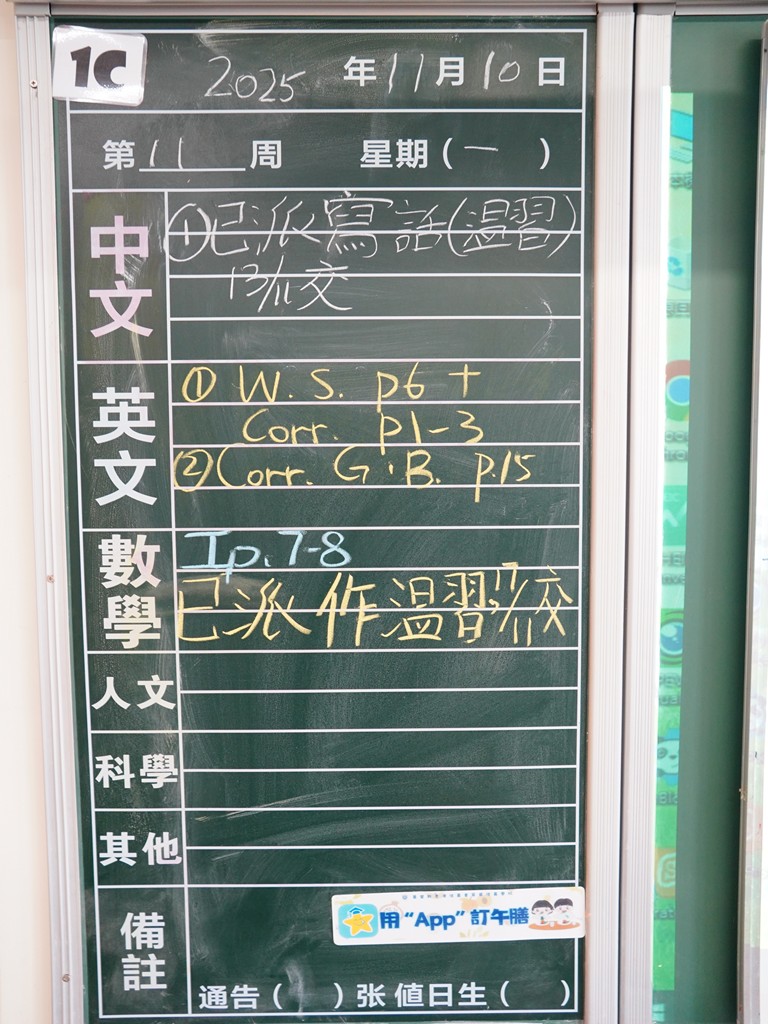 1C
2025 年 11 月 10 日
第 11 周 星期 (一)
中文
①已派寫話(温習)
13/11交
英文
① W. S. p6 +
Corr. p1-3
②Corr. G.B. p.15
數學
Ip.7-8
已派作温習,17/11交
人文
科學
其他
備註
用“App”訂午膳
通告 ( ) 张 值日生 ( )